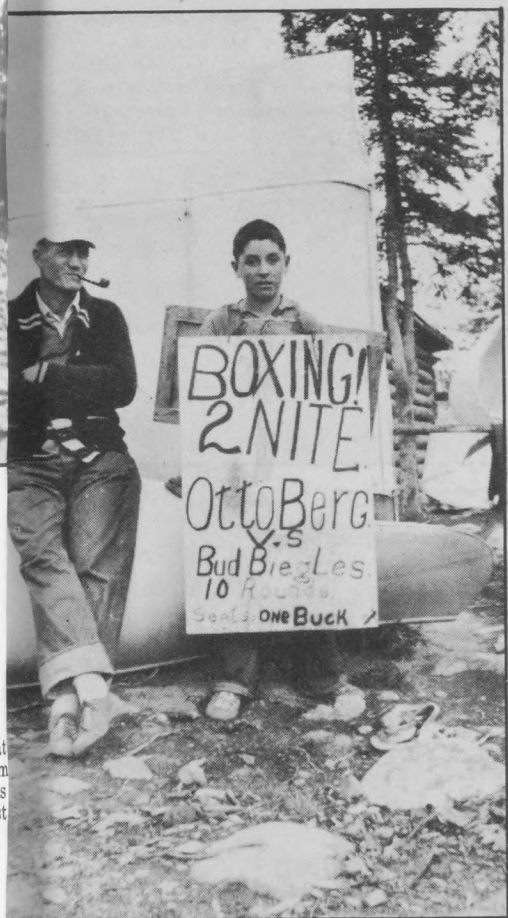 BOXING!
2 NITE.
Otto Berg.
V.S
Bud Biegles.
10 Rounds
Seats: ONE BUCK
t
m
s
t